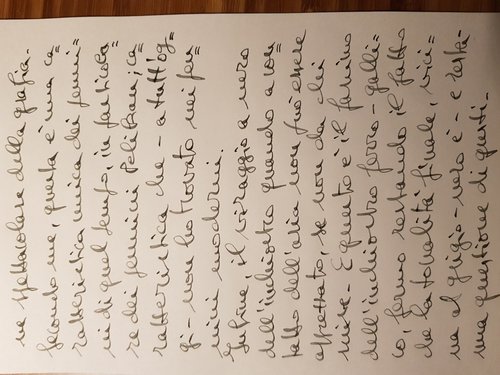 ne spettacolare della grafia.
Secondo me, questa è una ca=
ratteristica unica dei penni=
ni di quel tempo, in particola=
re dei pennini Pelikan; ca=
ratteristica che - a tutt'og=
gi - non ho trovato nei pen=
nini moderni.
Infine, il viraggio a nero
dell'inchiostro quando a con=
tatto dell'aria non può essere
se non da chi
E questo è il fascino
dell'inchiostro ferro-galli=
co, fermo restando il fatto
che la tonalità finale, vici=
na al grigio-nero è - e resta -
una questione di gusti.